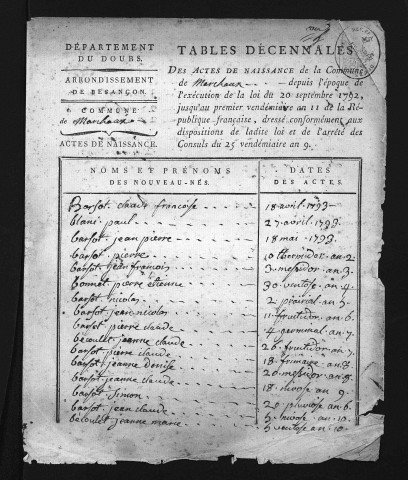 DÉPARTEMENT
DU DOUBS.
ARRONDISSEMENT
DE BESANÇON.
COMMUNE
de Marchaux
ACTES DE NAISSANCE.
TABLES DÉCENNALES
DES ACTES DE NAISSANCE de la Commune
de Marchaux depuis l'époque de
l'exécution de la loi du 20 septembre 1792,
jusqu'au premier vendémiaire an 11 de la Ré-
publique française, dressé conformément aux
dispositions de ladite loi et de l'arrêté des
Consuls du 25 vendémiaire an 9.
NOMS ET PRÉNOMS
DES NOUVEAU-NÉS.
DATES
DES ACTES.
Barsot claude francoise 18 avril 1793
blanc paul 27 avril 1793
barsot jean pierre 18 mai 1793
barsot pierre 10 thermidor an 2
barsot jean francois 3 messidor an 3
bonnet pierre étienne 30 ventose an 4
barsot nicolas 2 prairial an 5
barsot jean nicolas 11 fructidor an 6
barsot pierre claude 4 germinal an 7
becoulet jeanne claude 26 fructidor an 7
barsot pierre claude 18 frimaire an 8
barsot jeanne denise 20 messidor an 8
barsot jeanne claude 18 nivose an 9
barsot Simon 20 pluviose an 6
barsot jean claude 5 nivose an 10
becoulet jeanne marie 5 ventose an 10